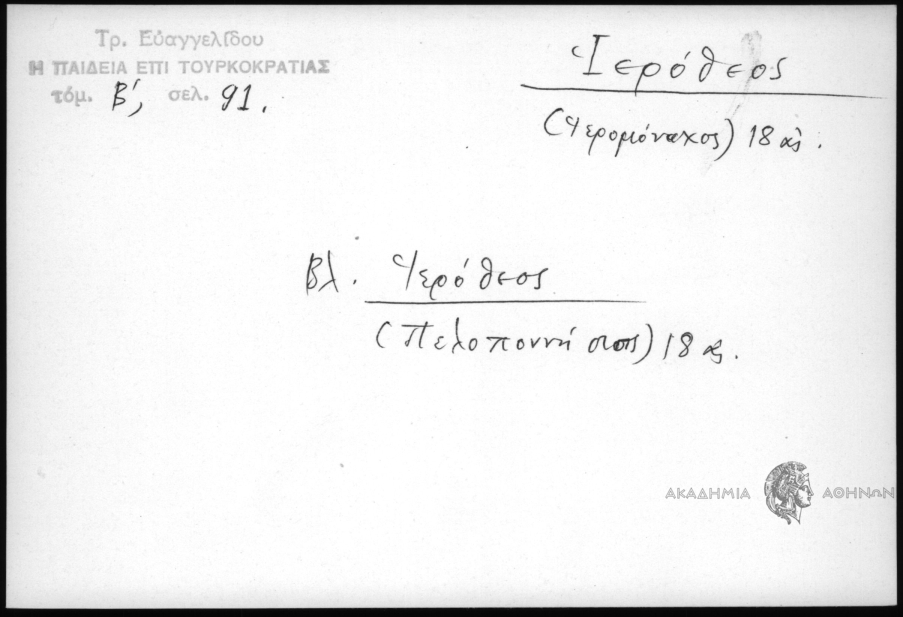 Τρ. Εὐαγγελίδου
Η ΠΑΙΔΕΙΑ ΕΠΙ ΤΟΥΡΚΟΚΡΑΤΙΑΣ
τόμ. Β΄, σελ. 91.
Ἱερόθεος
(Ἱερομόναχος) 18 αἰ.
Βλ. Ἱερόθεος
(Πελοποννήσιος) 18 αἰ.
ΑΚΑΔΗΜΙΑ ΑΘΗΝΩΝ